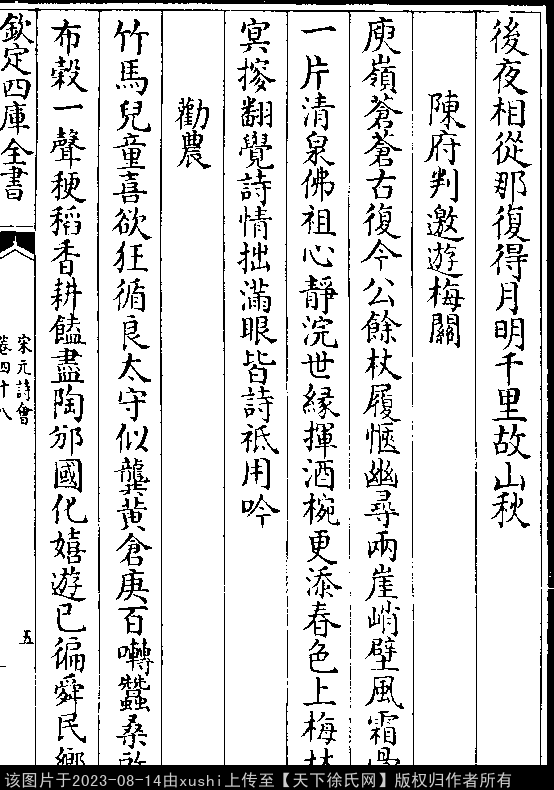 後夜相從那復得月明千里故山秋
陳府判邀遊梅關
庾嶺蒼蒼古復今公餘杖履愜幽尋兩崖峭壁風霜
一片清泉佛祖心靜浣世緣揮酒椀更添春色上梅林
冥搜翻覺詩情拙滿眼皆詩祇用吟
勸農
竹馬兒童喜欲狂循良太守似龔黄倉庚百囀蠶桑
布糓一聲稉稻香耕饁盡陶邠國化嬉遊已徧舜民鄉
欽定四庫全書
宋元詩會
卷四十八
五
该图片于2023-08-14由xushi上传至【天下徐氏网】版权归作者所有